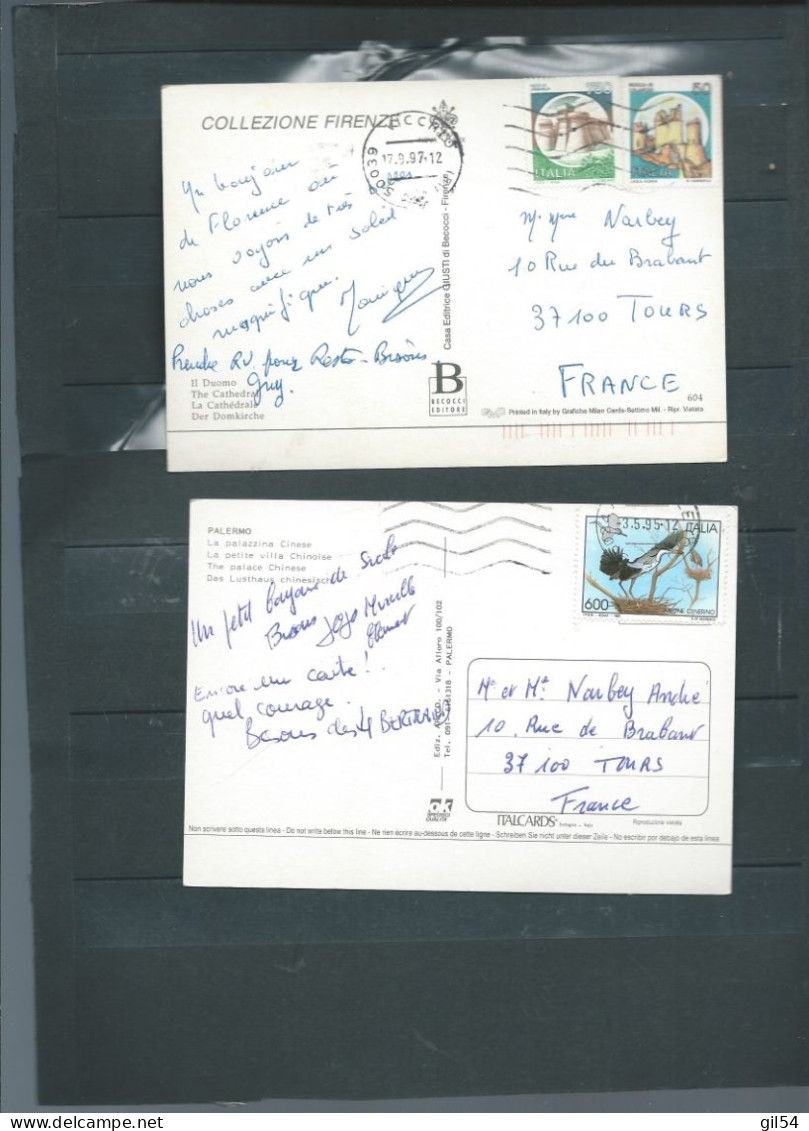 COLLEZIONE FIRENZE
50039
17.9.97-12
750
ITALIA
50
Un bonjour
de Florence où
nous voyons de très
choses avec un soleil
magnifique.
Prendre RV. pour Resto - Bisous
Guy.
Il Duomo
The Cathedral
La Cathédrale
Der Domkirche
Casa Editrice GIUSTI di Becocci - Firenze
B
BECOCCI
EDITORE
M. Mme Narbey
10 Rue du Brabant
37100 TOURS
FRANCE
604
Printed in Italy by Grafiche Milan Cerda-Settimo Mil. - Ripr. Vietata
PALERMO
La palazzina Cinese
La petite villa Chinoise
The palace Chinese
Das Lusthaus chinesisch
-3.5.95-12
ITALIA
600
Un petit bonjour de Sicile
Bisous
Encore une carte!
quel courage.
Bisous des 4 BERTRAND
Via Alloro 100/102
Tel. 091 - PALERMO
Me et Me Narbey André
10, Rue de Brabant
37100 TOURS
France
OK
ITALCARDS Bologna - Italy
Riproduzione vietata
Non scrivere sotto questa linea - Do not write below this line - Ne rien écrire au-dessous de cette ligne - Schreiben Sie nicht unter dieser Zeile - No escribir por debajo de esta linea
gil54